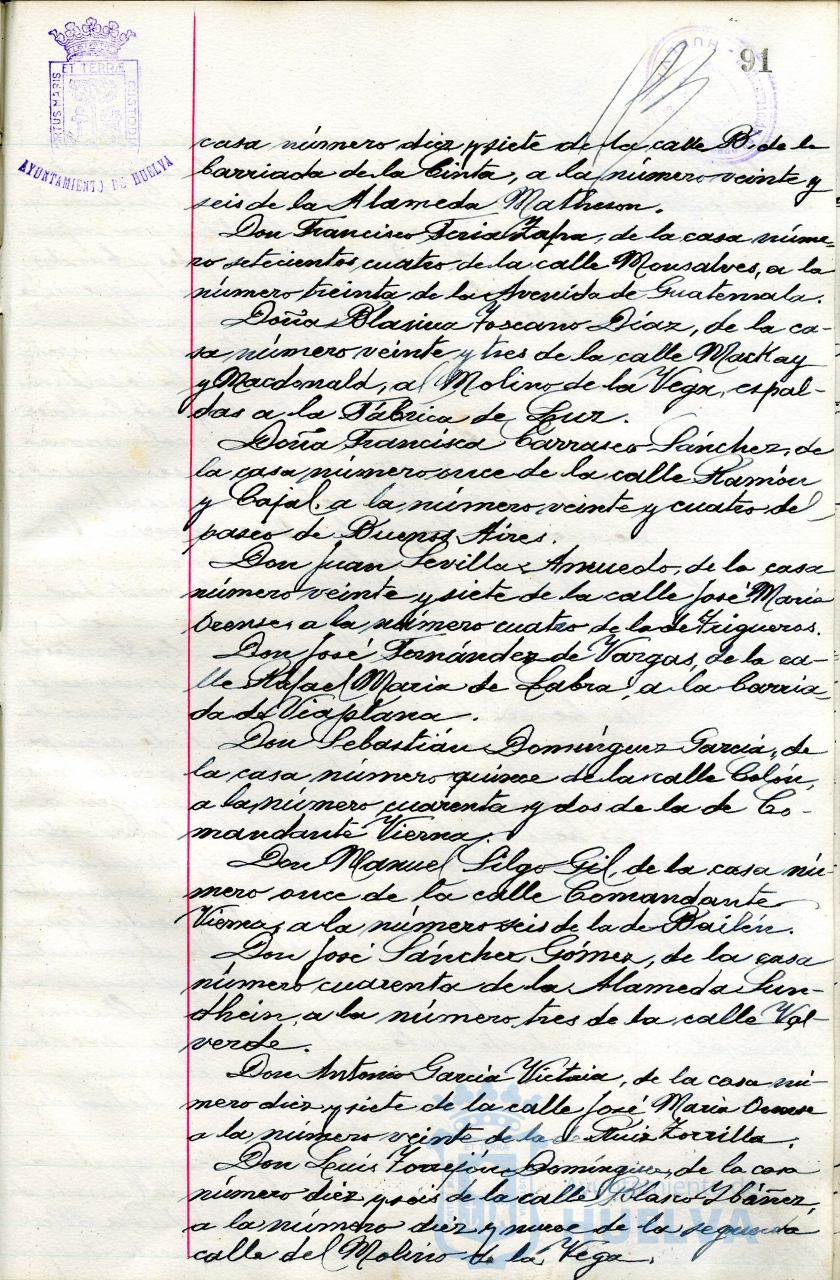 91
ET TERRÆ
PORTUS MARIS
CUSTODIA
AYUNTAMIENTO DE HUELVA
casa número diez y siete de la calle B. de la
barriada de la Cinta, a la número veinte y
seis de la Alameda Matheson.
Don Francisco Feria Zapa, de la casa núme-
ro setecientos cuatro de la calle Monsalves, a la
número treinta de la Avenida de Guatemala.
Doña Blasina Toscano Díaz, de la ca-
sa número veinte y tres de la calle Mackay
y Macdonald, al Molino de la Vega, espal-
das a la Fábrica de Luz.
Doña Francisca Carrasco Sánchez, de
la casa número once de la calle Ramón
y Cajal, a la número veinte y cuatro del
paseo de Buenos Aires.
Don Juan Sevilla Amuedo, de la casa
número veinte y siete de la calle José María
Orense, a la número cuatro de la de Trigueros.
Don José Fernández de Vargas, de la ca-
lle Rafael María de Labra, a la barria-
da de Viaplana.
Don Sebastián Domínguez García, de
la casa número quince de la calle Colón,
a la número cuarenta y dos de la de Co-
mandante Vierna.
Don Manuel Silgo Gil, de la casa nú-
mero once de la calle Comandante
Vierna, a la número seis de la de Bailén.
Don José Sánchez Gómez, de la casa
número cuarenta de la Alameda Sun-
dhein, a la número tres de la calle Val-
verde.
Don Antonio García, de la casa nú-
mero diez y siete de la calle José María Orense
a la número veinte de la de Ruiz Zorrilla.
Don Luis Torrejón Domínguez, de la casa
número diez y seis de la calle Blasco Ybáñez,
a la número diez y nueve de la segunda
calle del Molino de la Vega.
Ayuntamiento de
HUELVA